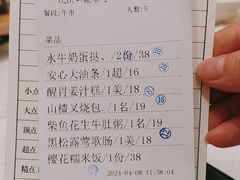 餐段:午市
人数:5
菜品
水牛奶蛋挞、/2份/38
安心大油条/1超/16
醒胃姜汁/1美/18
山楂叉烧包、/1名/19
柴鱼花生牛肚粥/1名/19
黑松露莺歌肠/1美/38
樱花糯米饭/1份/38
2024-04-08 11:58:04
小点
大点
顶点
超点
精点